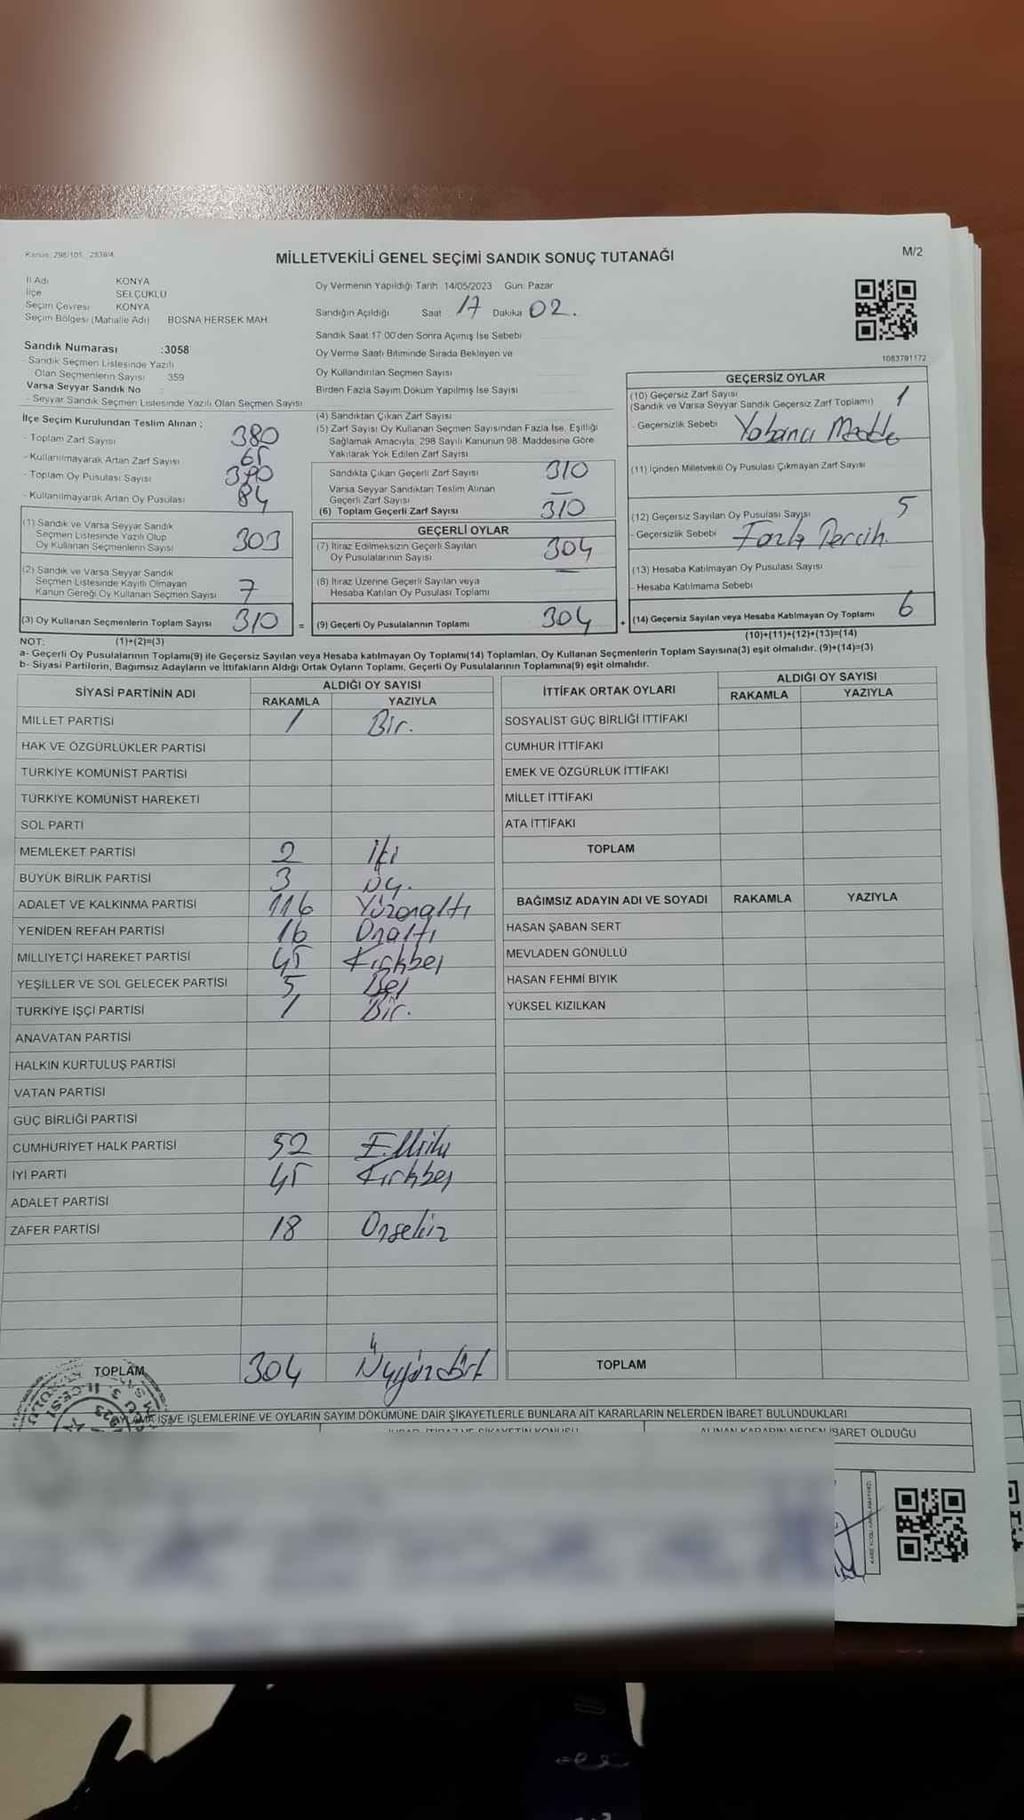 Kanun: 298/105, 2839/4
MİLLETVEKİLİ GENEL SEÇİMİ SANDIK SONUÇ TUTANAĞI
M/2
İl Adı KONYA
İlçe SELÇUKLU
Seçim Çevresi KONYA
Seçim Bölgesi (Mahalle Adı) BOSNA HERSEK MAH.
Sandık Numarası :3058
- Sandık Seçmen Listesinde Yazılı
Olan Seçmenlerin Sayısı 359
Varsa Seyyar Sandık No :
- Seyyar Sandık Seçmen Listesinde Yazılı Olan Seçmen Sayısı
Oy Vermenin Yapıldığı Tarih: 14/05/2023 Gün: Pazar
Sandığın Açıldığı Saat 17 Dakika 02.
Sandık Saat 17:00'den Sonra Açımış İse Sebebi
Oy Verme Saati Bitiminde Sırada Bekleyen ve
Oy Kullandırılan Seçmen Sayısı
Birden Fazla Sayım Döküm Yapılmış İse Sayısı
1083791172
İlçe Seçim Kurulundan Teslim Alınan ;
- Toplam Zarf Sayısı 380
- Kullanılmayarak Artan Zarf Sayısı 65
- Toplam Oy Pusulası Sayısı 390
- Kullanılmayarak Artan Oy Pusulası 84
(1) Sandık ve Varsa Seyyar Sandık
Seçmen Listesinde Yazılı Olup
Oy Kullanan Seçmenlerin Sayısı 303
(2) Sandık ve Varsa Seyyar Sandık
Seçmen Listesinde Kayıtlı Olmayan
Kanun Gereği Oy Kullanan Seçmen Sayısı 7
(3) Oy Kullanan Seçmenlerin Toplam Sayısı 310 =
(4) Sandıktan Çıkan Zarf Sayısı
(5) Zarf Sayısı Oy Kullanan Seçmen Sayısından Fazla İse, Eşitliği
Sağlamak Amacıyla, 298 Sayılı Kanunun 98. Maddesine Göre
Yakılarak Yok Edilen Zarf Sayısı
Sandıkta Çıkan Geçerli Zarf Sayısı 310
Varsa Seyyar Sandıktan Teslim Alınan
Geçerli Zarf Sayısı –
(6) Toplam Geçerli Zarf Sayısı 310
GEÇERLİ OYLAR
(7) İtiraz Edilmeksizin Geçerli Sayılan
Oy Pusulalarının Sayısı 304
(8) İtiraz Üzerine Geçerli Sayılan veya
Hesaba Katılan Oy Pusulası Toplamı —
(9) Geçerli Oy Pusulalarının Toplamı 304 +
GEÇERSİZ OYLAR
(10) Geçersiz Zarf Sayısı
(Sandık ve Varsa Seyyar Sandık Geçersiz Zarf Toplamı) 1
- Geçersizlik Sebebi Yabancı Madde
(11) İçinden Milletvekili Oy Pusulası Çıkmayan Zarf Sayısı
(12) Geçersiz Sayılan Oy Pusulası Sayısı 5
- Geçersizlik Sebebi Fazla Tercih
(13) Hesaba Katılmayan Oy Pusulası Sayısı
- Hesaba Katılmama Sebebi
(14) Geçersiz Sayılan veya Hesaba Katılmayan Oy Toplamı 6
NOT: (1)+(2)=(3)
(10)+(11)+(12)+(13)=(14)
a- Geçerli Oy Pusulalarının Toplamı(9) ile Geçersiz Sayılan veya Hesaba Katılmayan Oy Toplamı(14) Toplamları, Oy Kullanan Seçmenlerin Toplam Sayısına(3) eşit olmalıdır. (9)+(14)=(3)
b- Siyasi Partilerin, Bağımsız Adayların ve İttifakların Aldığı Ortak Oyların Toplamı, Geçerli Oy Pusulalarının Toplamına(9) eşit olmalıdır.
SİYASİ PARTİNİN ADI ALDIĞI OY SAYISI
RAKAMLA YAZIYLA
MİLLET PARTİSİ 1 Bir.
HAK VE ÖZGÜRLÜKLER PARTİSİ
TÜRKİYE KOMÜNİST PARTİSİ
TÜRKİYE KOMÜNİST HAREKETİ
SOL PARTİ
MEMLEKET PARTİSİ 2 İki
BÜYÜK BİRLİK PARTİSİ 3 Üç.
ADALET VE KALKINMA PARTİSİ 116 Yüzonaltı
YENİDEN REFAH PARTİSİ 16 Onaltı
MİLLİYETÇİ HAREKET PARTİSİ 45 Kırkbeş
YEŞİLLER VE SOL GELECEK PARTİSİ 5 Beş
TÜRKİYE İŞÇİ PARTİSİ 1 Bir.
ANAVATAN PARTİSİ
HALKIN KURTULUŞ PARTİSİ
VATAN PARTİSİ
GÜÇ BİRLİĞİ PARTİSİ
CUMHURİYET HALK PARTİSİ 52 Elliiki
İYİ PARTİ 45 Kırkbeş
ADALET PARTİSİ
ZAFER PARTİSİ 18 Onsekiz
TOPLAM 304 Üçyüzdört
İTTİFAK ORTAK OYLARI ALDIĞI OY SAYISI
RAKAMLA YAZIYLA
SOSYALİST GÜÇ BİRLİĞİ İTTİFAKI
CUMHUR İTTİFAKI
EMEK VE ÖZGÜRLÜK İTTİFAKI
MİLLET İTTİFAKI
ATA İTTİFAKI
TOPLAM
BAĞIMSIZ ADAYIN ADI VE SOYADI RAKAMLA YAZIYLA
HASAN ŞABAN SERT
MEVLADEN GÖNÜLLÜ
HASAN FEHMİ BIYIK
YÜKSEL KIZILKAN
TOPLAM
İŞ VE İŞLEMLERİNE VE OYLARIN SAYIM DÖKÜMÜNE DAİR ŞİKAYETLERLE BUNLARA AİT KARARLARIN NELERDEN İBARET BULUNDUKLARI
ALINAN KARARIN NEDEN İBARET OLDUĞU